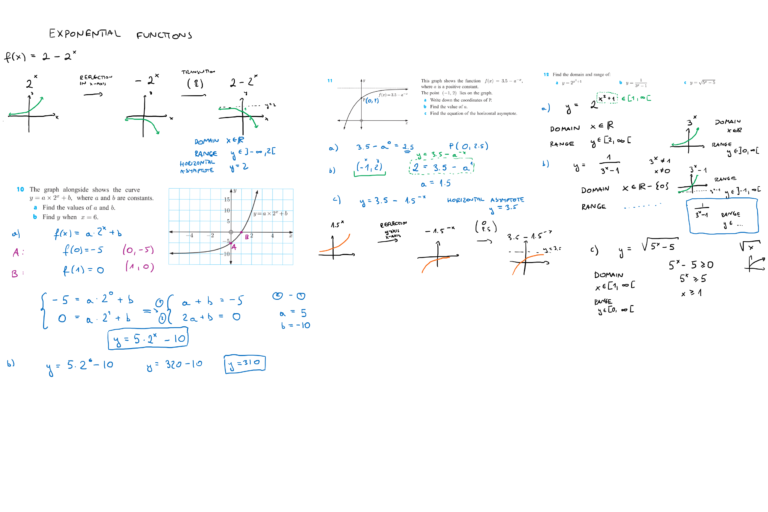 EXPONENTIAL FUNCTIONS
f(x) = 2 - 2^x
2^x
REFLECTION
- 2^x
TRANSLATION
2 - 2^x
y=2
DOMAIN x∈R
RANGE y∈]-∞,2[
HORIZONTAL
ASYMPTOTE y=2
10 The graph alongside shows the curve
y = a × 2^x + b, where a and b are constants.
a Find the values of a and b.
b Find y when x = 6.
y = a × 2^x + b
15
10
5
-5
-10
-4 -2 2 4 x
A
B
a) f(x) = a·2^x + b
A: f(0) = -5 (0,-5)
B: f(1) = 0 (1,0)
-5 = a·2^0 + b => ① a + b = -5 ② - ①
0 = a·2^1 + b ② 2a + b = 0 a = 5
b = -10
y = 5·2^x - 10
b) y = 5·2^6 - 10 y = 320 - 10 y = 310
11
f(x) = 3.5 - a^-x
P(0,1)
This graph shows the function f(x) = 3.5 - a^-x,
where a is a positive constant.
The point (-1, 2) lies on the graph.
a Write down the coordinates of P.
b Find the value of a.
c Find the equation of the horizontal asymptote.
a) 3.5 - a^0 = 2.5 P(0, 2.5)
y = 3.5 - a^-x
b) (-1, 2) 2 = 3.5 - a^1
a = 1.5
c) y = 3.5 - 1.5^-x HORIZONTAL ASYMPTOTE
y = 3.5
1.5^-x
REFLECTION
-1.5^-x
3.5 - 1.5^-x
y=3.5
12 Find the domain and range of:
a y = 2^(x²+1) b y = 1/(3^x-1) c y = √(5^x-5)
a) y = 2^(x²+1) ∈[1,∞[
DOMAIN x∈R
RANGE y∈[2,∞[
3^x
DOMAIN
x∈R
RANGE
y∈]0,∞[
b) y = 1/(3^x-1) 3^x≠1
x≠0
DOMAIN x∈R-{0}
RANGE .......
3^x-1
RANGE
y∈]-1,∞[
1/(3^x-1) RANGE
y∈ ...
c) y = √(5^x-5)
√x
5^x - 5 ≥ 0
DOMAIN 5^x ≥ 5
x∈[1,∞[ x ≥ 1
RANGE
y∈[0,∞[